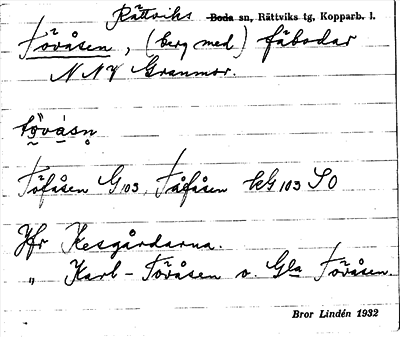 Rättviks Boda sn, Rättviks tg, Kopparb. l.
Tövåsen, (berg med) fäbodar
NNV Granmor.
tö̀vǻsn̥
Töfåsen G103, Tåfåsen hG 103 SO
Jfr Kesgårdarna.
" Karl-Tövåsen o. Gla Tövåsen.
Bror Lindén 1932